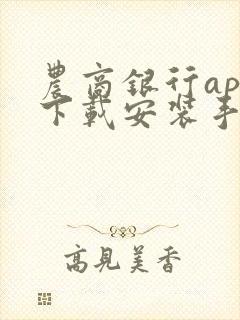 農商銀行ap
下載安裝手
高見美香